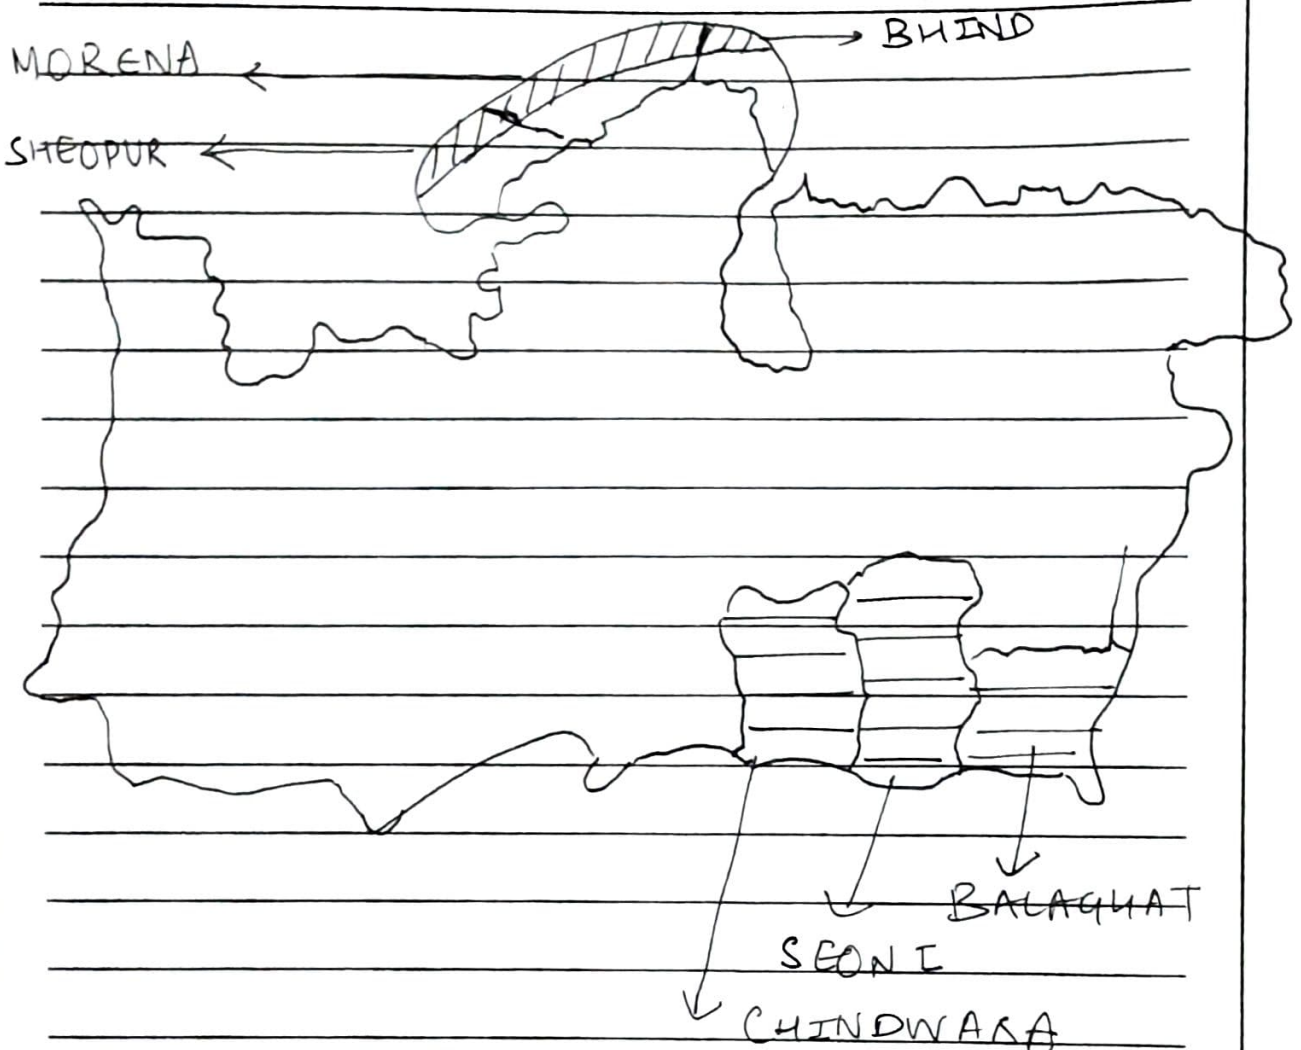 BHIND
MORENA
SHEOPUR
BALAGHAT
SEONI
CHINDWARA